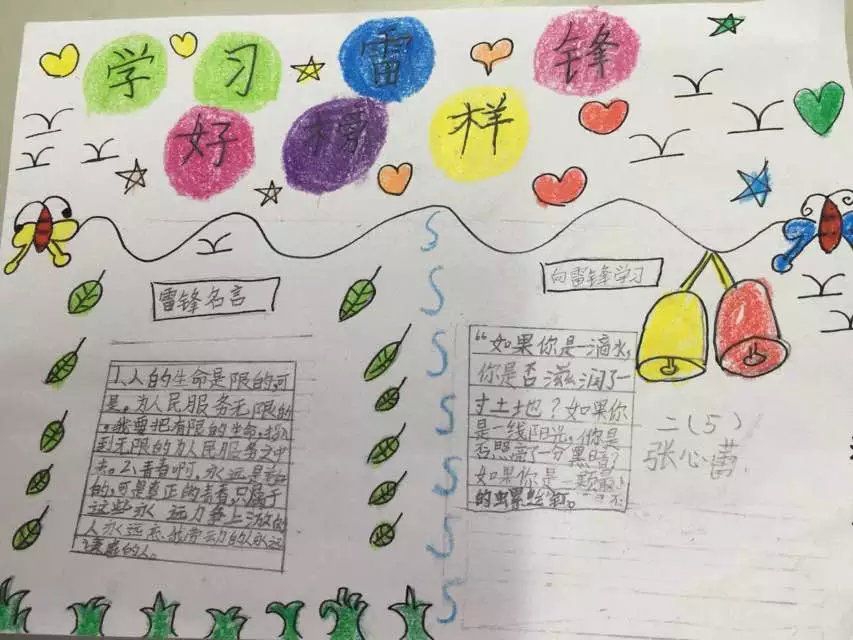 学习雷锋
好榜样
雷锋名言
1、人的生命是限的可
是。为人民服务无限的
。我要把有限的生命，投
到无限的为人民服务之中
去。2、青春啊，永远是
的，可是真正的青春，只属于
这些永 远力争上游的
人永远 劳动的人永远
的人。
向雷锋学习
“如果你是一滴水，
你是否滋润了一
寸土地？如果你
是一线阳光，你是
否照亮了一分黑暗？
如果你是一颗
的螺丝钉。
二（5）
张心蕾